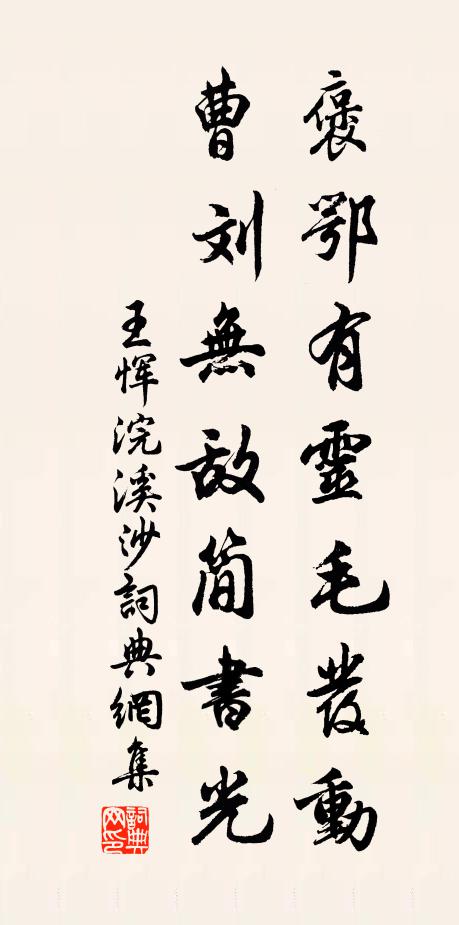 褒鄂有靈毛發動
曹刘無敌简書光
王恽浣溪沙詞典網集
詞典网印